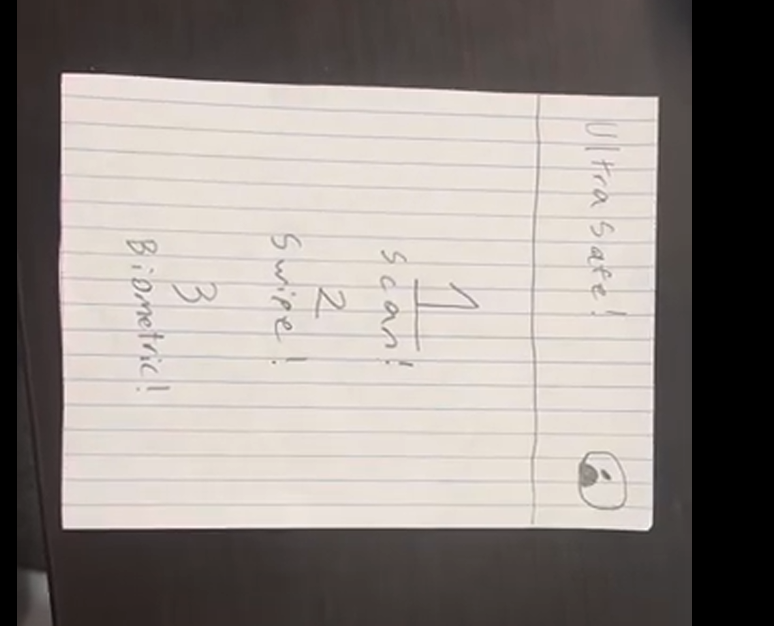 Ultra Safe!
1
Scan!
2
Swipe!
3
Biometric!